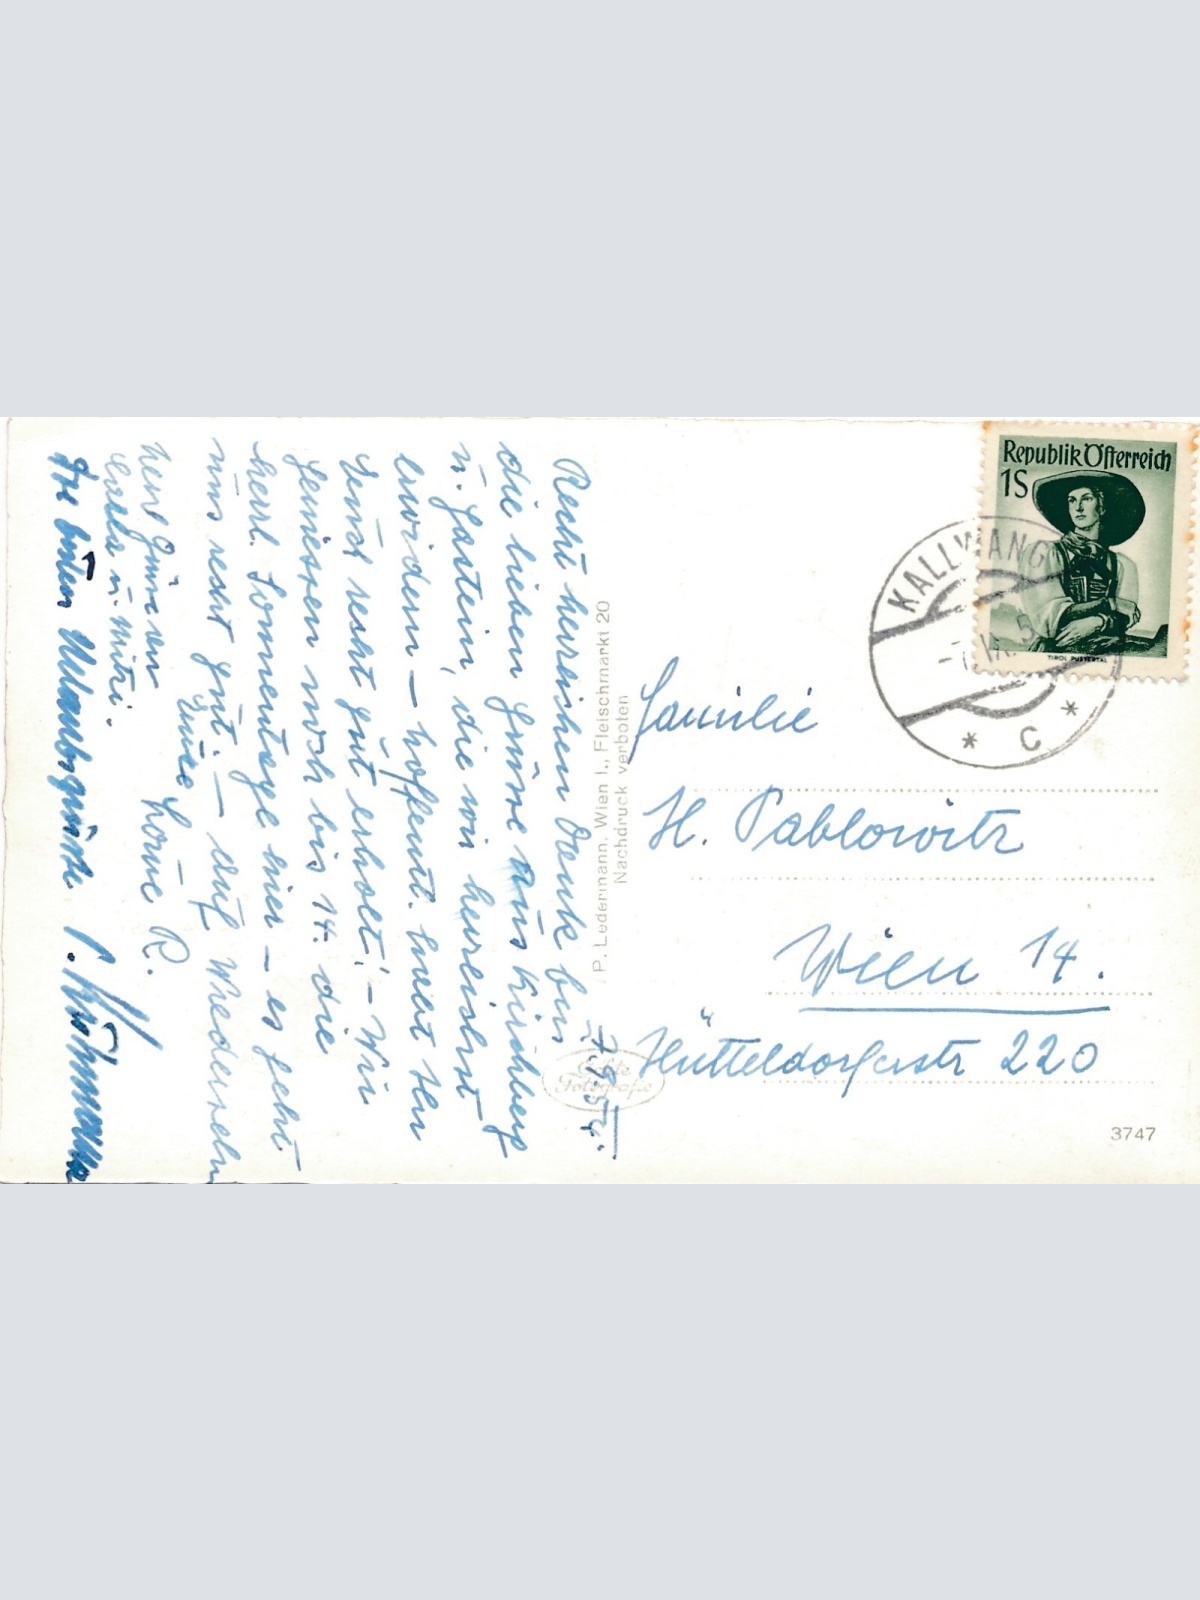 7.9.54.
Recht herzlichen Dank für
die lieben Grüße aus Kirchberg
u. Gastein, die wir herzlichst
erwidern – hoffentl. habt Ihr
Euch recht gut erholt! – Wir
genießen noch bis 14. die
herrl. Sonnentage hier – es geht
uns recht gut. – Auf Wiedersehn
und Grüße an
Eure Lorne R.
u. Mitzi.
Urlaubsgrüße
P. Ledermann, Wien I., Fleischmarkt 20
Nachdruck verboten
Echte
Fotografie
Republik Österreich
1S
TIROL PUSTERTAL
KALLWANG
* C *
Familie
H. Pablowitz
Wien 14.
Hütteldorferstr 220
3747